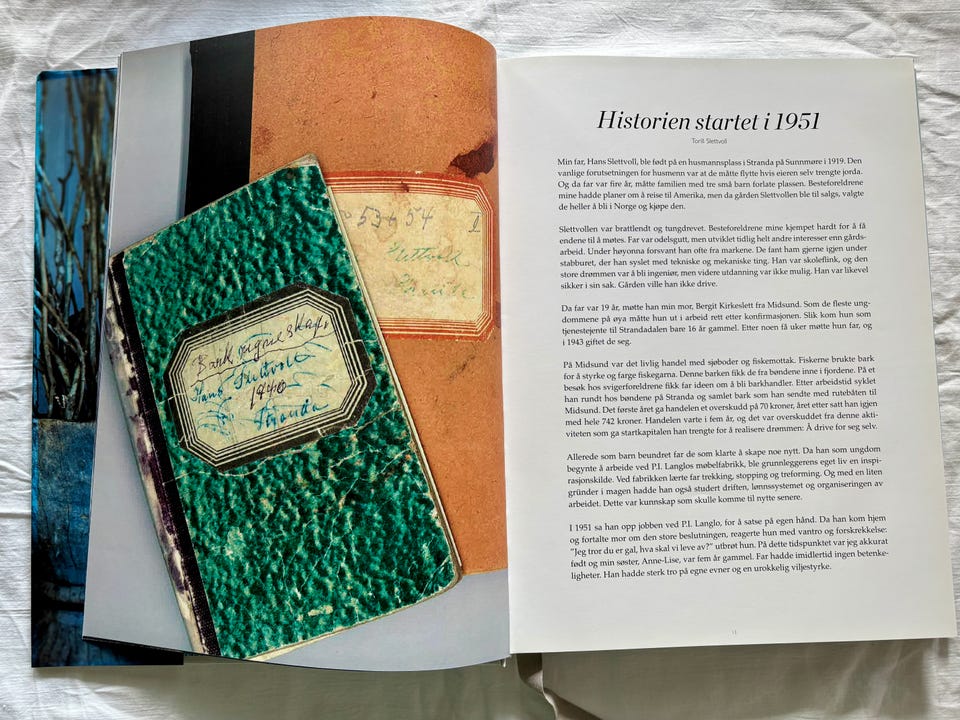 53 54 I
Slettvoll
Bark
Hans Slettvoll
1940
Stranda
Historien startet i 1951
Torill Slettvoll
Min far, Hans Slettvoll, ble født på en husmannsplass i Stranda på Sunnmøre i 1919. Den
vanlige forutsetningen for husmenn var at de måtte flytte hvis eieren selv trengte jorda.
Og da far var fire år, måtte familien med tre små barn forlate plassen. Besteforeldrene
mine hadde planer om å reise til Amerika, men da gården Slettvollen ble til salgs, valgte
de heller å bli i Norge og kjøpe den.
Slettvollen var brattlendt og tungdrevet. Besteforeldrene mine kjempet hardt for å få
endene til å møtes. Far var odelsgutt, men utviklet tidlig helt andre interesser enn gårds-
arbeid. Under høyonna forsvant han ofte fra markene. De fant ham gjerne igjen under
stabburet, der han syslet med tekniske og mekaniske ting. Han var skoleflink, og den
store drømmen var å bli ingeniør, men videre utdanning var ikke mulig. Han var likevel
sikker i sin sak. Gården ville han ikke drive.
Da far var 19 år, møtte han min mor, Bergit Kirkeslett fra Midsund. Som de fleste ung-
dommene på øya måtte hun ut i arbeid rett etter konfirmasjonen. Slik kom hun som
tjenestejente til Strandadalen bare 16 år gammel. Etter noen få uker møtte hun far, og
i 1943 giftet de seg.
På Midsund var det livlig handel med sjøboder og fiskemottak. Fiskerne brukte bark
for å styrke og farge fiskegarna. Denne barken fikk de fra bøndene inne i fjordene. På et
besøk hos svigerforeldrene fikk far ideen om å bli barkhandler. Etter arbeidstid syklet
han rundt hos bøndene på Stranda og samlet bark som han sendte med rutebåten til
Midsund. Det første året ga handelen et overskudd på 70 kroner, året etter satt han igjen
med hele 742 kroner. Handelen varte i fem år, og det var overskuddet fra denne akti-
viteten som ga startkapitalen han trengte for å realisere drømmen: Å drive for seg selv.
Allerede som barn beundret far de som klarte å skape noe nytt. Da han som ungdom
begynte å arbeide ved P.I. Langlos møbelfabrikk, ble grunnleggerens eget liv en inspi-
rasjonskilde. Ved fabrikken lærte far trekking, stopping og treforming. Og med en liten
gründer i magen hadde han også studert driften, lønnssystemet og organiseringen av
arbeidet. Dette var kunnskap som skulle komme til nytte senere.
I 1951 sa han opp jobben ved P.I. Langlo, for å satse på egen hånd. Da han kom hjem
og fortalte mor om den store beslutningen, reagerte hun med vantro og forskrekkelse:
"Jeg tror du er gal, hva skal vi leve av?" utbrøt hun. På dette tidspunktet var jeg akkurat
født og min søster, Anne-Lise, var fem år gammel. Far hadde imidlertid ingen betenke-
ligheter. Han hadde sterk tro på egne evner og en urokkelig viljestyrke.
11